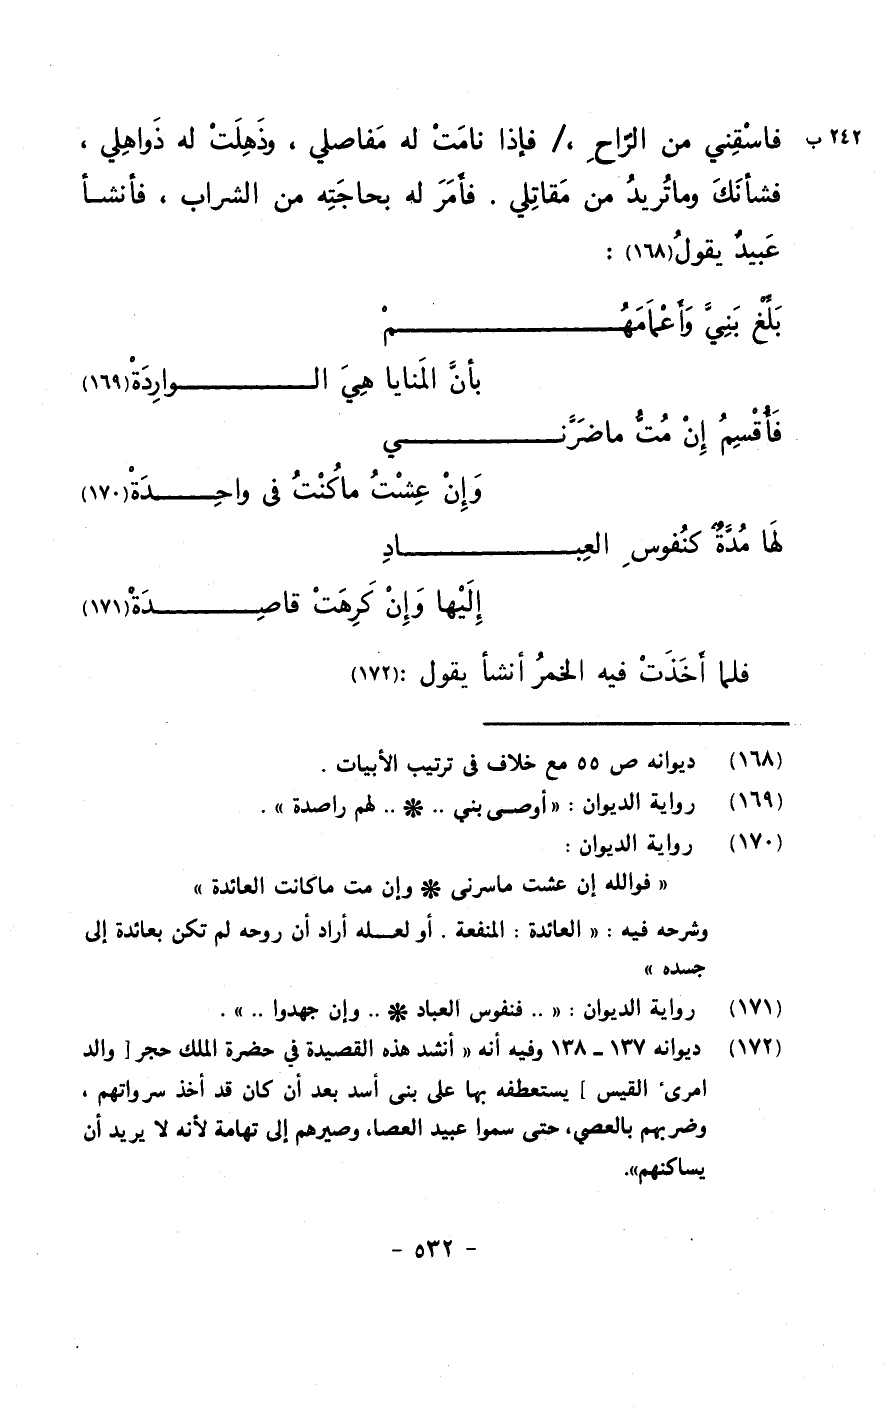 ٢٤٢ ب فاسْقِني من الرّاحِ ،/ فإذا نامَتْ له مَفاصلي ، وذَهِلَتْ له ذَواهِلي ،
فشأنَكَ وماتُريدُ من مَقاتِلي . فأمَرَ له بحاجَتِه من الشراب ، فأنشأ
عَبيدٌ يقولُ(١٦٨) :
بَلِّغْ بَنِيَّ وَأَعْمَامَهُمْ
بأنَّ المَنايا هِيَ الوارِدَةْ(١٦٩)
فَأُقْسِمُ إِنْ مُتُّ ماضَرَّني
وَإِنْ عِشْتُ ماكُنْتُ فى واحِدَةْ(١٧٠)
لَها مُدَّةٌ كنُفوسِ العِبادِ
إِلَيْها وَإِنْ كَرِهَتْ قاصِدَةْ(١٧١)
فلما أَخَذَتْ فيه الخمرُ أنشأ يقول :(١٧٢)
(١٦٨) ديوانه ص ٥٥ مع خلاف فى ترتيب الأبيات .
(١٦٩) رواية الديوان : « أوصى بني .. * .. لهم راصدة » .
(١٧٠) رواية الديوان :
« فوالله إن عشت ماسرنى * وإن مت ماكانت العائدة »
وشرحه فيه : « العائدة : المنفعة . أو لعله أراد أن روحه لم تكن بعائدة إلى
جسده »
(١٧١) رواية الديوان : « .. فنفوس العباد * .. وإن جهدوا .. » .
(١٧٢) ديوانه ١٣٧ ـ ١٣٨ وفيه أنه « أنشد هذه القصيدة في حضرة الملك حجر [ والد
امرىء القيس ] يستعطفه بها على بنى أسد بعد أن كان قد أخذ سرواتهم ،
وضربهم بالعصي، حتى سموا عبيد العصا، وصيرهم إلى تهامة لأنه لا يريد أن
يساكنهم».
- ٥٣٢ -